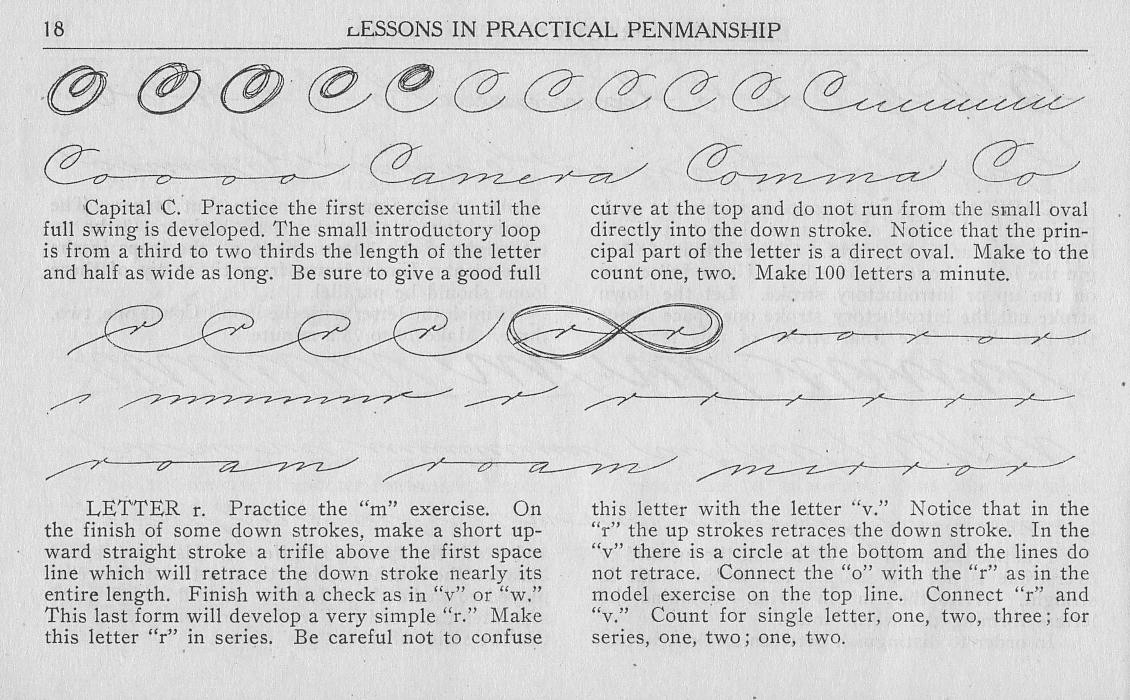 18
LESSONS IN PRACTICAL PENMANSHIP
C C C C C C C C C C Cuuuuuu
Co o o o Camera Comma Co
Capital C. Practice the first exercise until the
full swing is developed. The small introductory loop
is from a third to two thirds the length of the letter
and half as wide as long. Be sure to give a good full
curve at the top and do not run from the small oval
directly into the down stroke. Notice that the prin-
cipal part of the letter is a direct oval. Make to the
count one, two. Make 100 letters a minute.
r r r r r r
roam roam mirror
LETTER r. Practice the “m” exercise. On
the finish of some down strokes, make a short up-
ward straight stroke a trifle above the first space
line which will retrace the down stroke nearly its
entire length. Finish with a check as in “v” or “w.”
This last form will develop a very simple “r.” Make
this letter “r” in series. Be careful not to confuse
this letter with the letter “v.” Notice that in the
“r” the up strokes retraces the down stroke. In the
“v” there is a circle at the bottom and the lines do
not retrace. Connect the “o” with the “r” as in the
model exercise on the top line. Connect “r” and
“v.” Count for single letter, one, two, three; for
series, one, two; one, two.